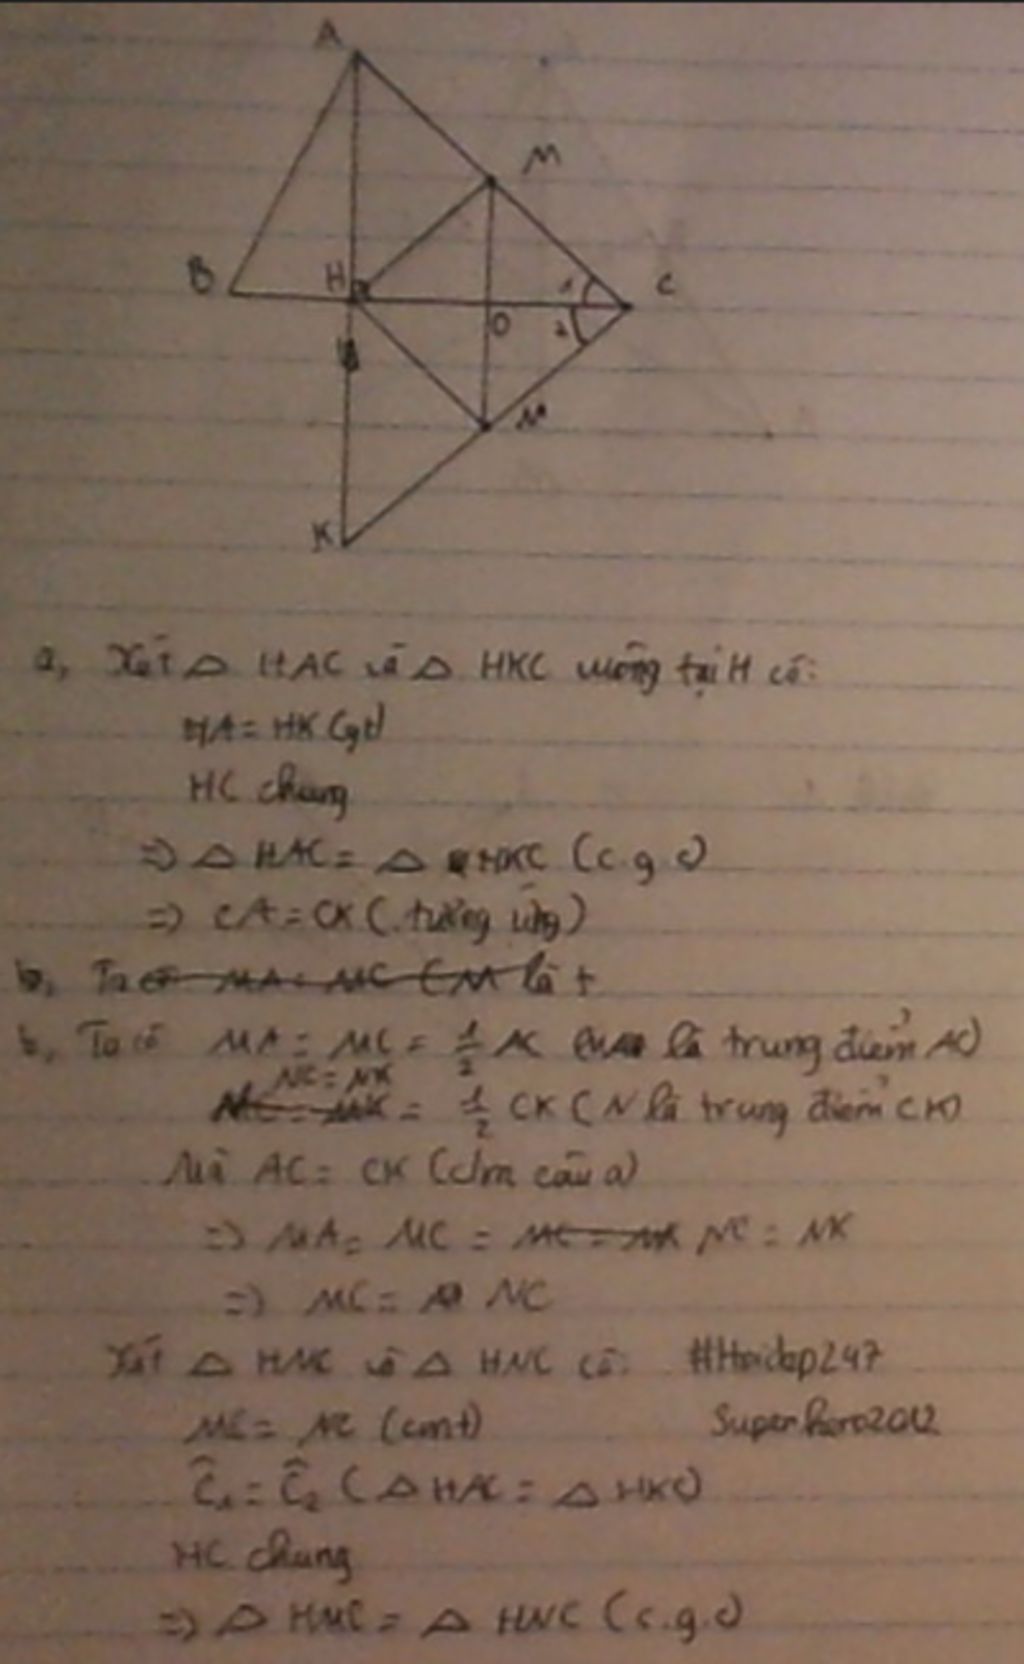 A
M
B
H
1
C
O
2
N
K
a, Xét △ HAC và △ HKC vuông tại H có:
HA = HK (gt)
HC chung
=> △ HAC = △ HKC (c.g.c)
=> CA = CK (tương ứng)
b, Ta có MA = MC (M là t
b, Ta có MA = MC = 1/2 AC (M là trung điểm AC)
NC = NK
= 1/2 CK (N là trung điểm CK)
Mà AC = CK (c/m câu a)
=> MA = MC = NC = NK
=> MC = NC
Xét △ HMC và △ HNC có: #Hoidap247
MC = NC (cmt) Superhero2012
Ĉ1 = Ĉ2 (△ HAC = △ HKC)
HC chung
=> △ HMC = △ HNC (c.g.c)